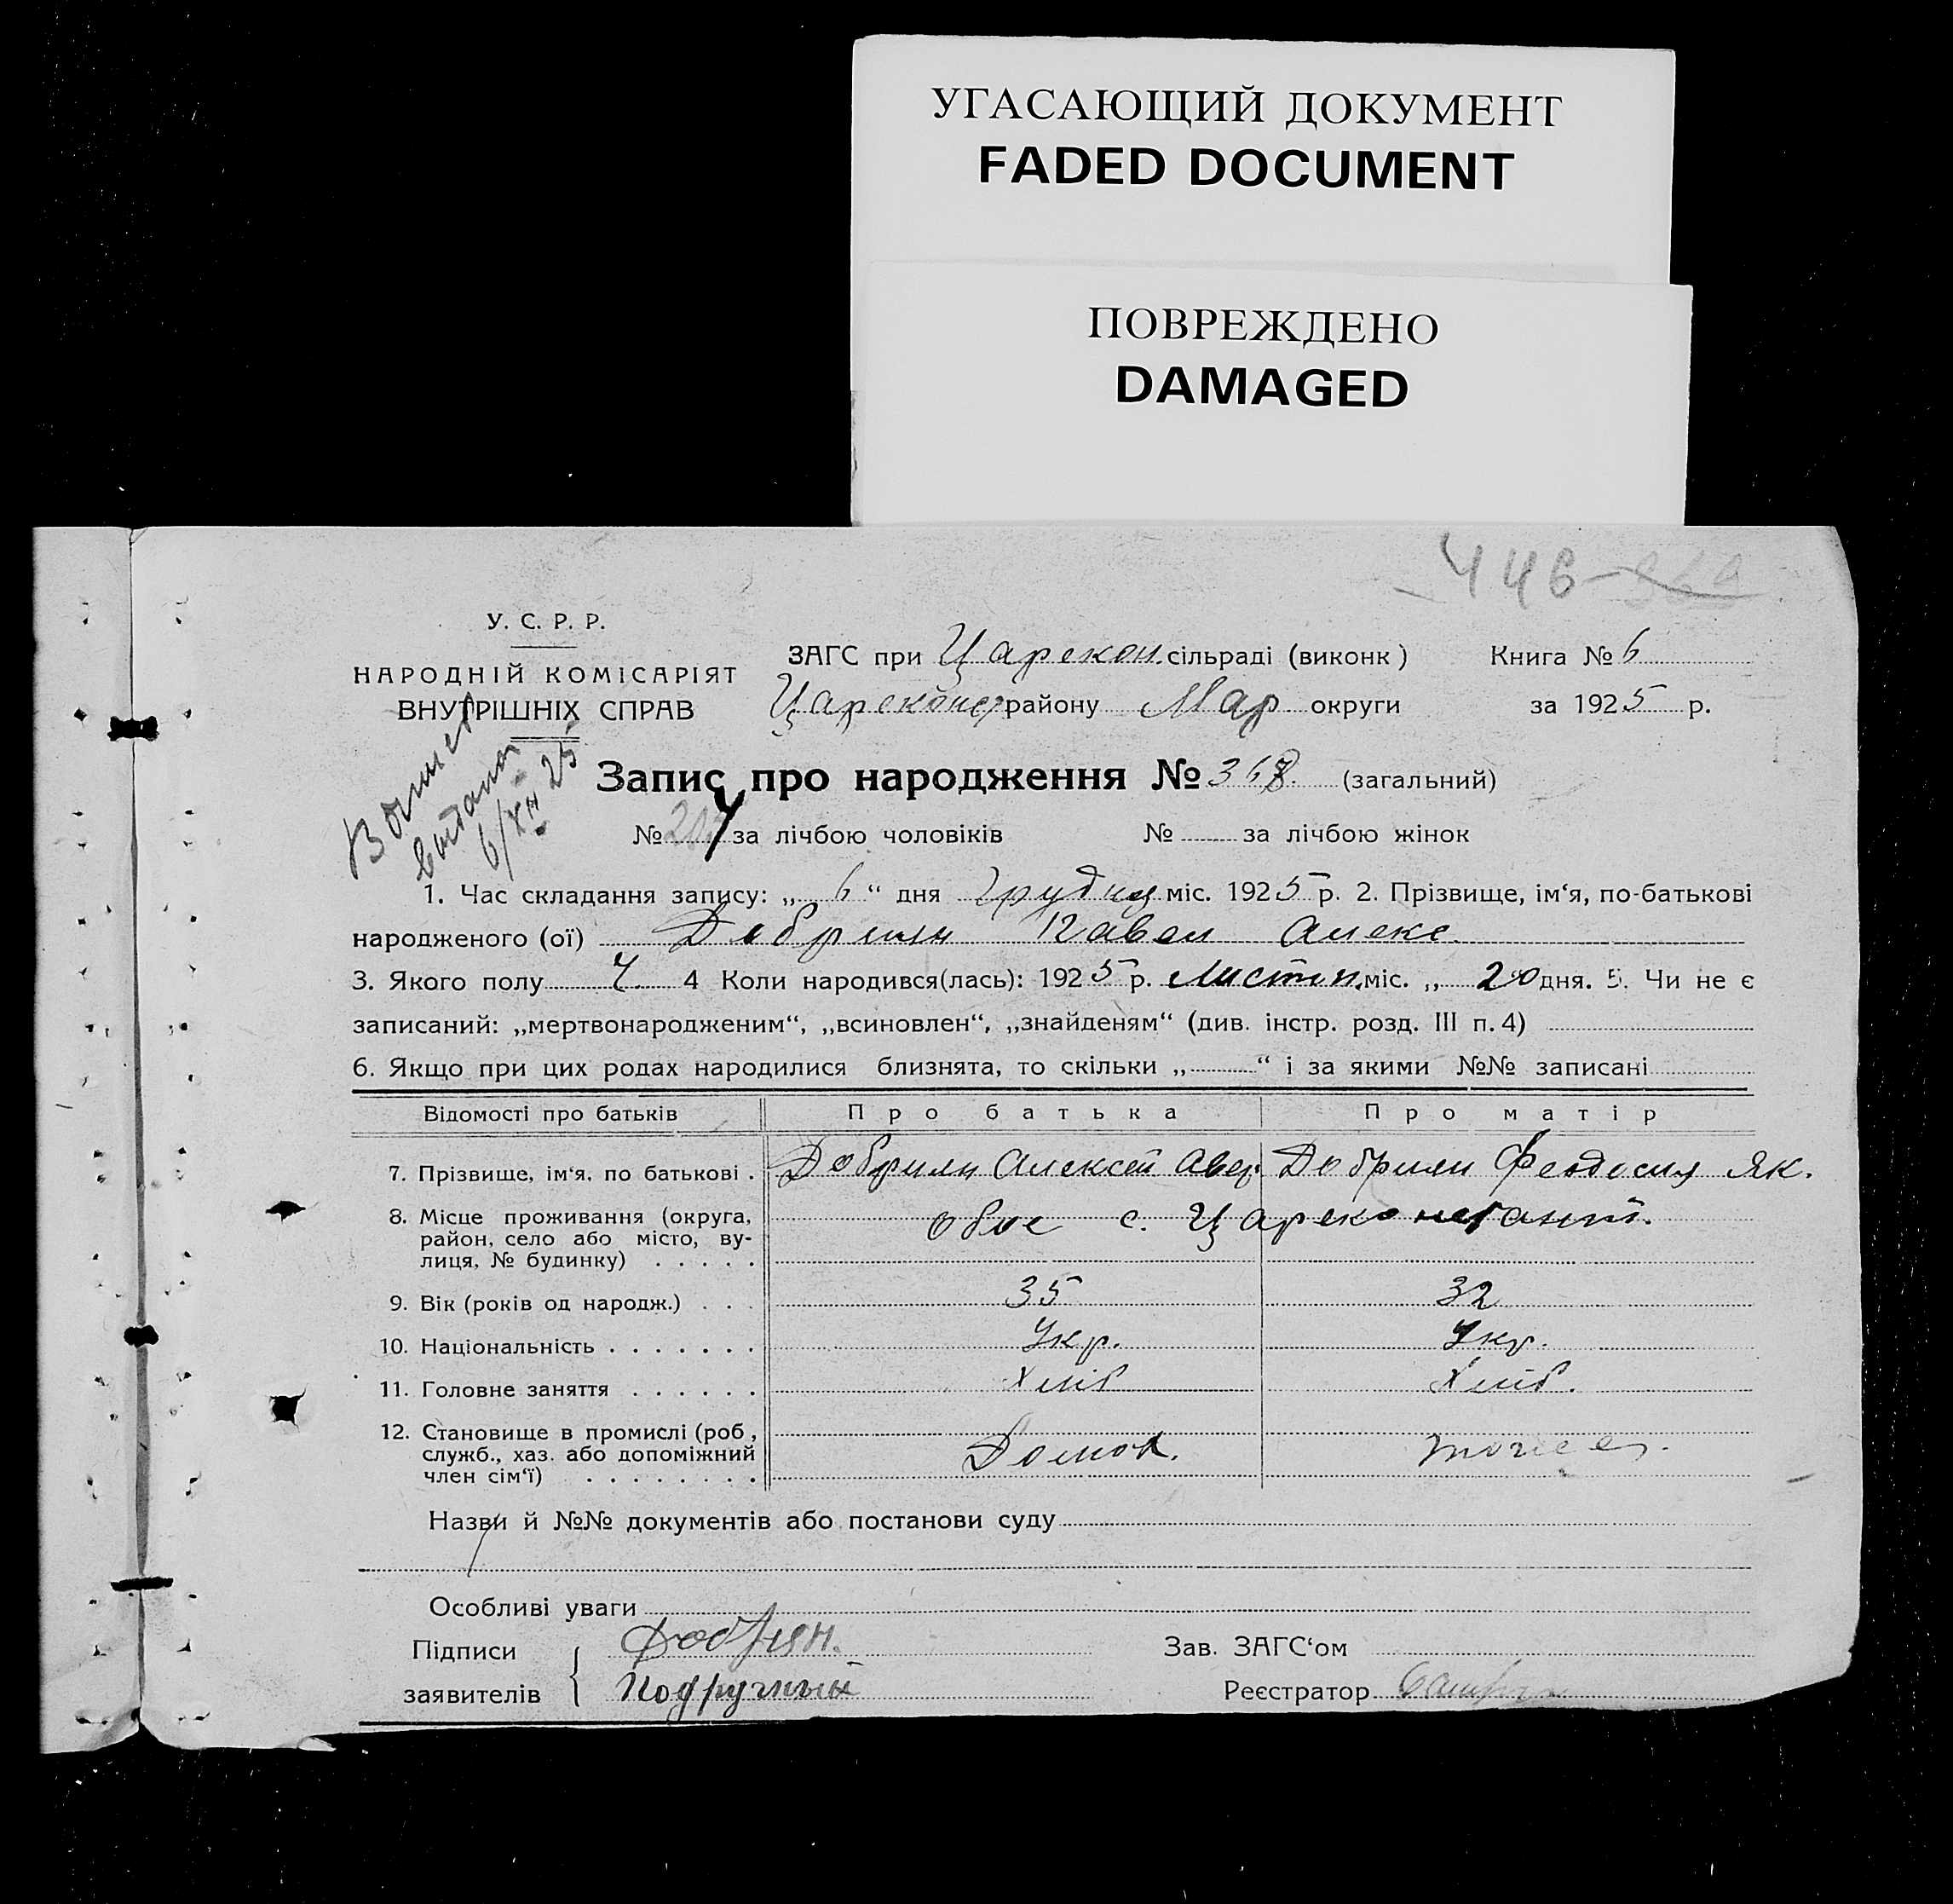 УГАСАЮЩИЙ ДОКУМЕНТ
FADED DOCUMENT
ПОВРЕЖДЕНО
DAMAGED
446
У. С. Р. Р.
НАРОДНІЙ КОМІСАРІЯТ
ВНУТРІШНІХ СПРАВ
ЗАГС при Царекон. сільраді (виконк) Книга № 6
Цареконст району Мар округи за 1925 р.
выдана
6/XII 25
Запис про народження № 368. (загальний)
№ 204 за лічбою чоловіків № за лічбою жінок
1. Час складання запису: „ 6 “ дня Грудня міс. 1925 р. 2. Прізвище, ім‘я, по-батькові
народженого (ої) Добрили Павел Алекс.
3. Якого полу Ч. 4 Коли народився(лась): 1925 р. Листп. міс. „ 20 дня. 5. Чи не є
записаний: „мертвонародженим“, „всиновлен“, „знайденям“ (див. інстр. розд. III п. 4)
6. Якщо при цих родах народилися близнята, то скільки „ “ і за якими №№ записані
Відомості про батьків Про батька Про матір
7. Прізвище, ім‘я, по батькові . Добрили Алексей Авер. Добрили Феодосия Як.
8. Місце проживання (округа, обое с. Цареконстант.
район, село або місто, ву-
лиця, № будинку) . . . . .
9. Вік (років од народж.) . . . 35 32
10. Національність . . . . . . . Укр. Укр.
11. Головне заняття . . . . . . Хліб Хліб.
12. Становище в промислі (роб.,
служб., хаз. або допоміжний Домох.
член сім‘ї) . . . . . . . .
Назви й №№ документів або постанови суду
Особливі уваги
Підписи Зав. ЗАГС‘ом
заявителів Подручный Реєстратор